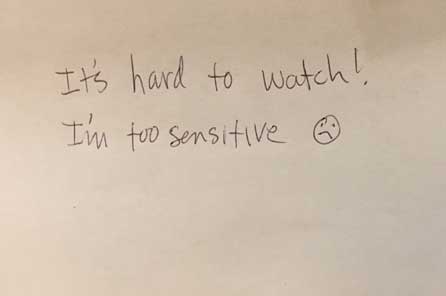 It's hard to watch!.
I'm too sensitive ☹